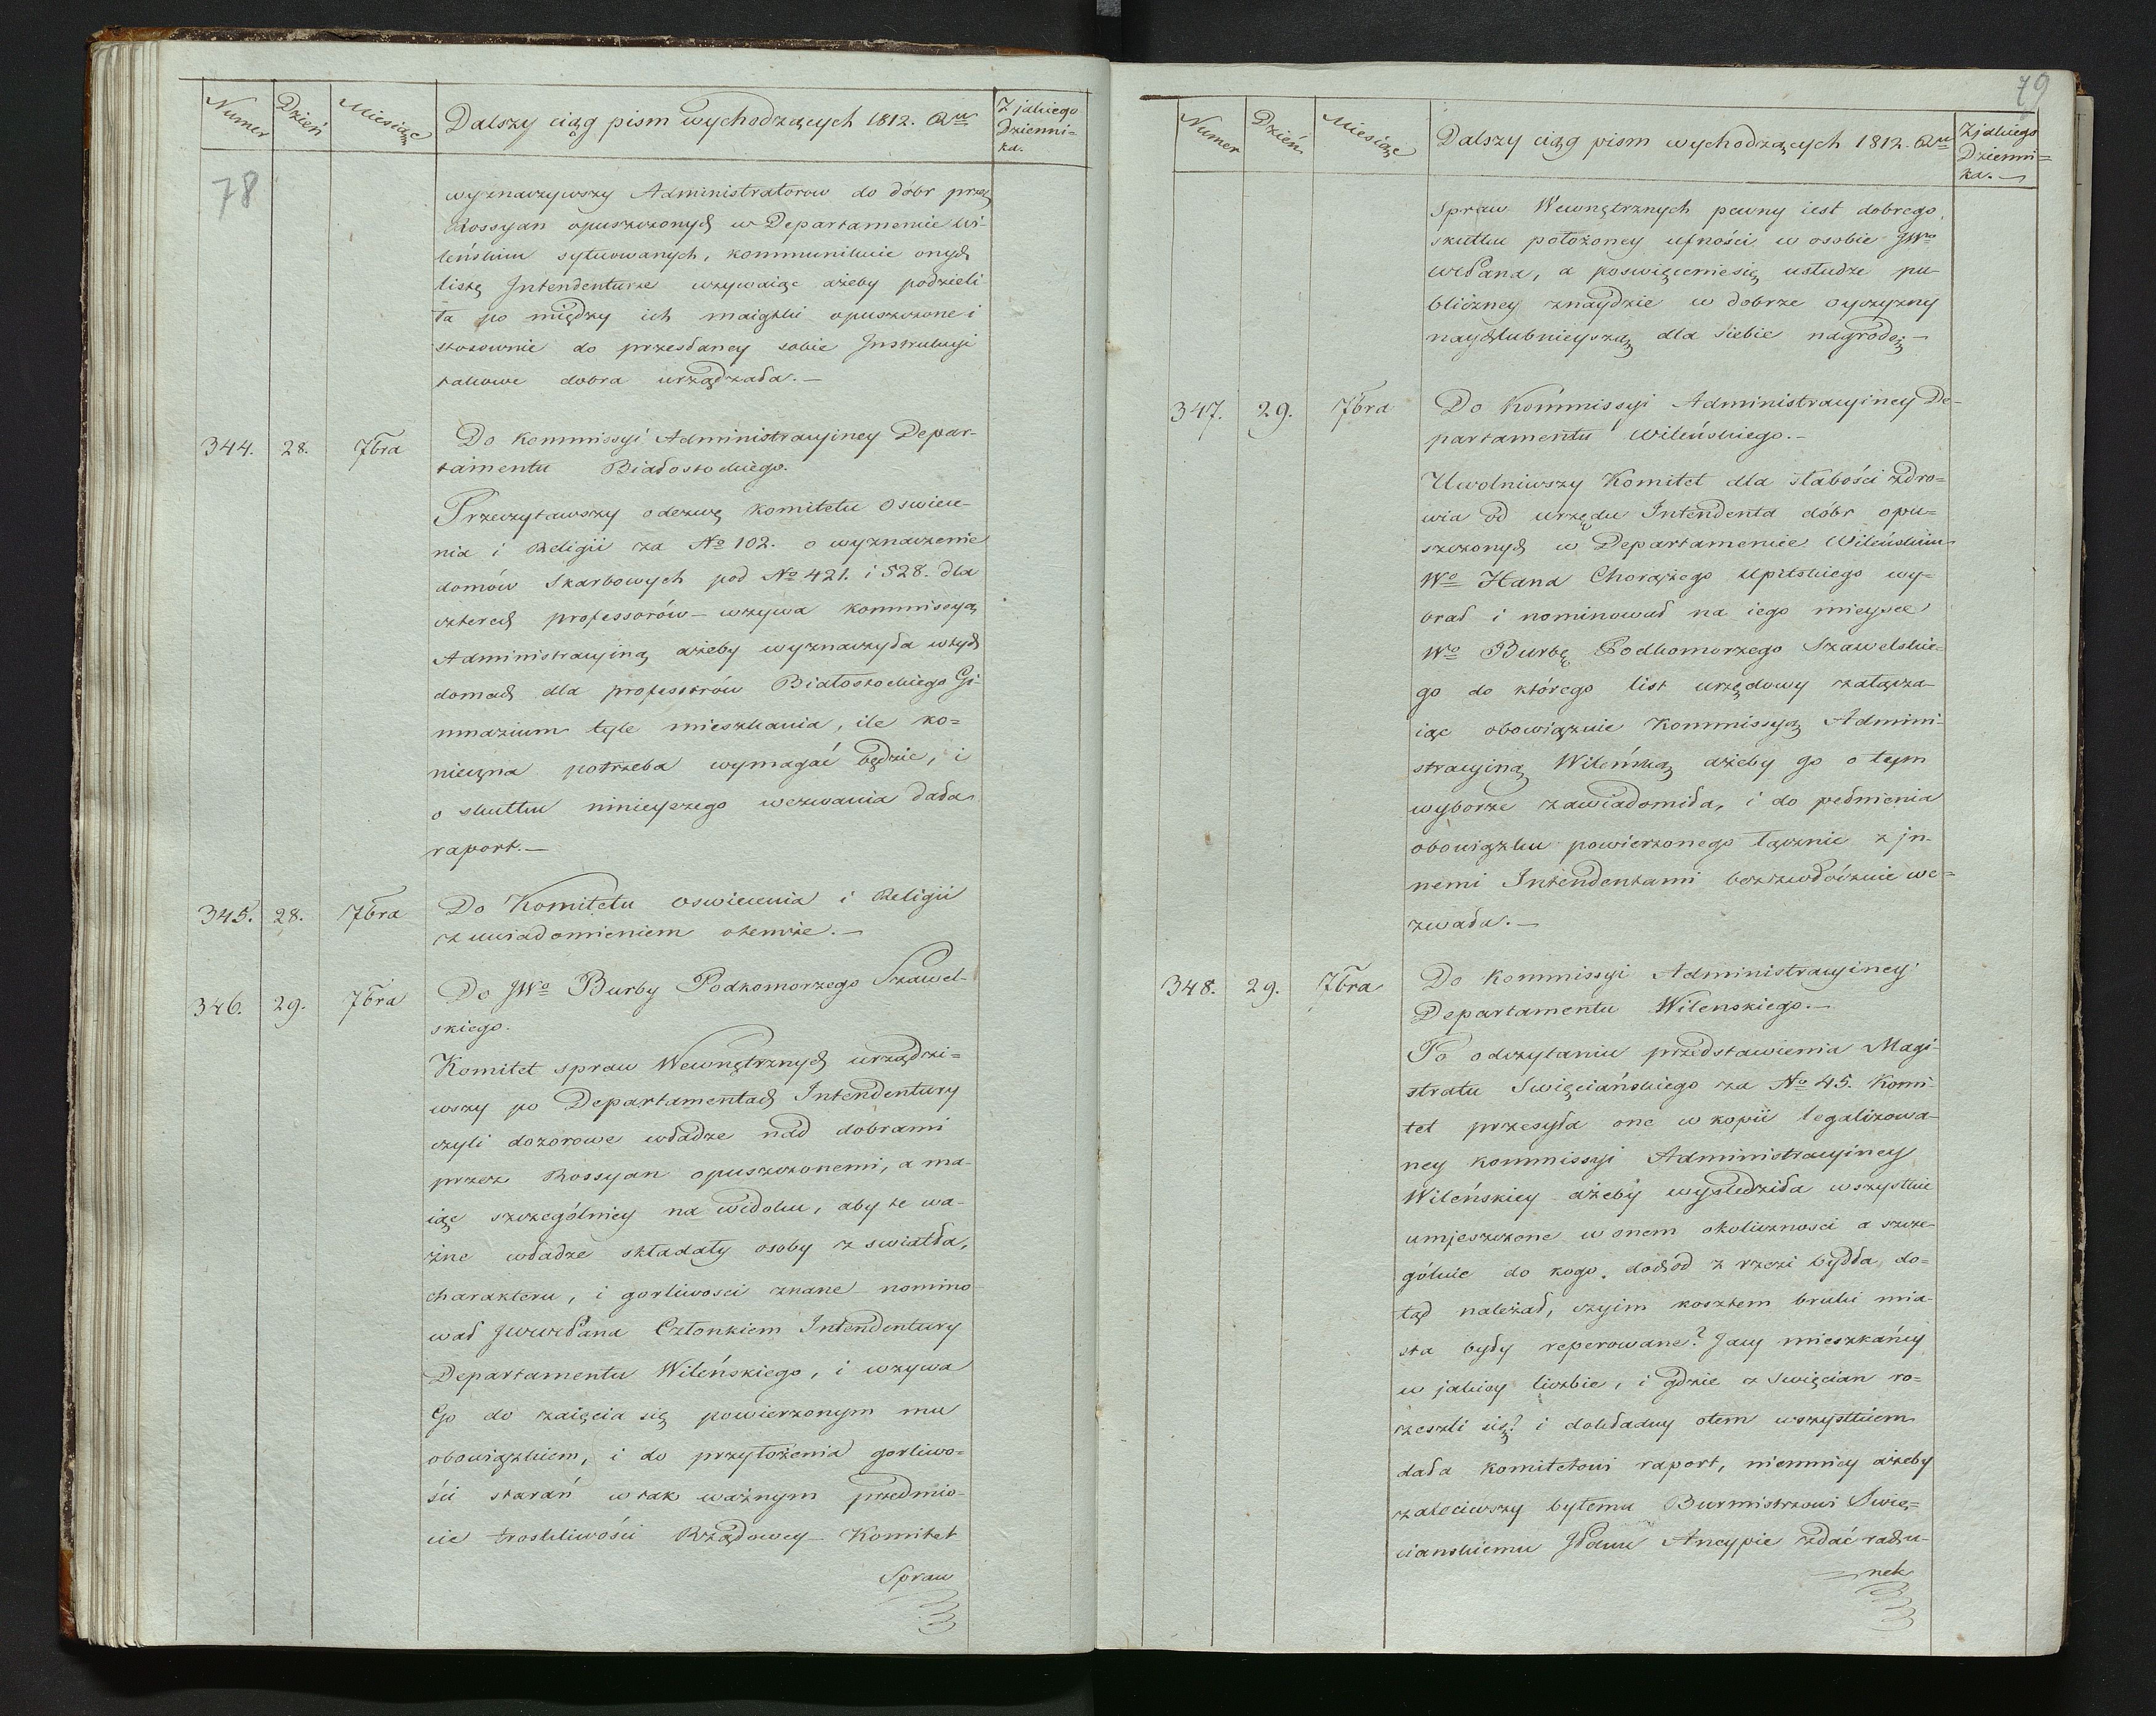 Numer Dzień Miesiąc Dalszy ciąg pism wychodzących 1812. Ru Z jakiego
Dzienni=
ka.
78
wyznaczywszy Administratorow do dóbr przez
Rossyan opuszczonych w Departamencie Wi-
leńskim sytuowanych, kommunikuie onych
listę Intendenturze wzywaiąc ażeby podzieli
ła po między ich maiątki opuszczone i
stosownie do przesłaney sobie Instrukcyi
takowe dobra urządzała.—
344. 28. 7bra Do Kommissyi Administracyiney Depar-
tamentu Białostockiego.
Przeczytawszy odezwę komitetu Oswiece-
nia i Religii za No 102. o wyznaczenie
domów Skarbowych pod No 421. i 528. dla
czterech professorów— wzywa kommissyą
Administracyiną ażeby wyznaczyła w tych
domach dla professorów Białostockiego Gi-
mnazium tyle mieszkania, ile ko=
nieczna potrzeba wymagać będzie, i
o skutku ninieyszego wezwania dała
raport.—
345. 28. 7bra Do Komitetu Oswiecenia i Religii
z uwiadomieniem otemże.—
346. 29. 7bra Do JWo Burby Podkomorzego Szawel-
skiego.
Komitet spraw Wewnętrznych urządzi=
wszy po Departamentach Intendentury
czyli dozorowe władze nad dobrami
przez Rossyan opuszczonemi, a ma-
iąc szczególniey na widoku, aby te wa-
żne władze składały osoby z swiatła,
charakteru, i gorliwosci znane nomino-
wał JWWPana Członkiem Intendentury
Departamentu Wileńskiego, i wzywa
Go do zaięcia się powierzonym mu
obowiązkiem, i do przyłożenia gorliwo=
ści starań w tak ważnym przedmio-
cie troskliwości Rządowey— Komitet
Spraw
79
Numer Dzień Miesiąc Dalszy ciąg pism wychodzących 1812. Ru Z jakiego
Dzienni=
ka.—
Spraw Wewnętrznych pewny iest dobrego
skutku położoney ufności w osobie JWo
WPana, a poswięceniesię usłudze pu-
bliczney znaydzie w dobrze oyczyzny
naychlubnieyszą dla siebie nagrodę.—
347. 29. 7bra Do Kommissyi Administracyiney De-
partamentu Wileńskiego.—
Uwolniwszy Komitet dla słabości zdro=
wia od urzędu Intendenta dóbr opu=
szczonych w Departamencie Wileńskim
Wo Hana Chorążego Upitskiego wy=
brał i nominował na iego mieysce
Wo Burbę Podkomorzego Szawelskie=
go do którego list urzędowy załącza-
iąc obowiązuie Kommissyą Admini-
stracyiną Wileńską ażeby go o tym
wyborze zawiadomiła, i do pełnienia
obowiązku powierzonego łącznie z jn-
nemi Intendentami bezzwłócznie we=
zwała.—
348. 29. 7bra Do Kommissyi Administracyiney
Departamentu Wilenskiego.—
Po odczytaniu przedstawienia Magi-
stratu Swięciańskiego za No 45. Komi-
tet przesyła one w kopii legalizowa-
ney kommissyi Administracyiney
Wileńskiey ażeby wysledziła wszystkie
umjeszczone w onem okoliczności a szcze-
gólnie do kogo dochod z rzezi bydła do=
tąd należał, czyim kosztem bruki mia-
sta były reperowane? Jacy mieszkańcy
w jakiey liczbie, i gdzie z Swięcian ro=
zeszli się? i dokładny otem wszystkiem
dała komitetowi raport, niemniey ażeby
zaleciwszy byłemu Burmistrzowi Swię=
cianskiemu JPanu Ancypie zdać rachu-
nek